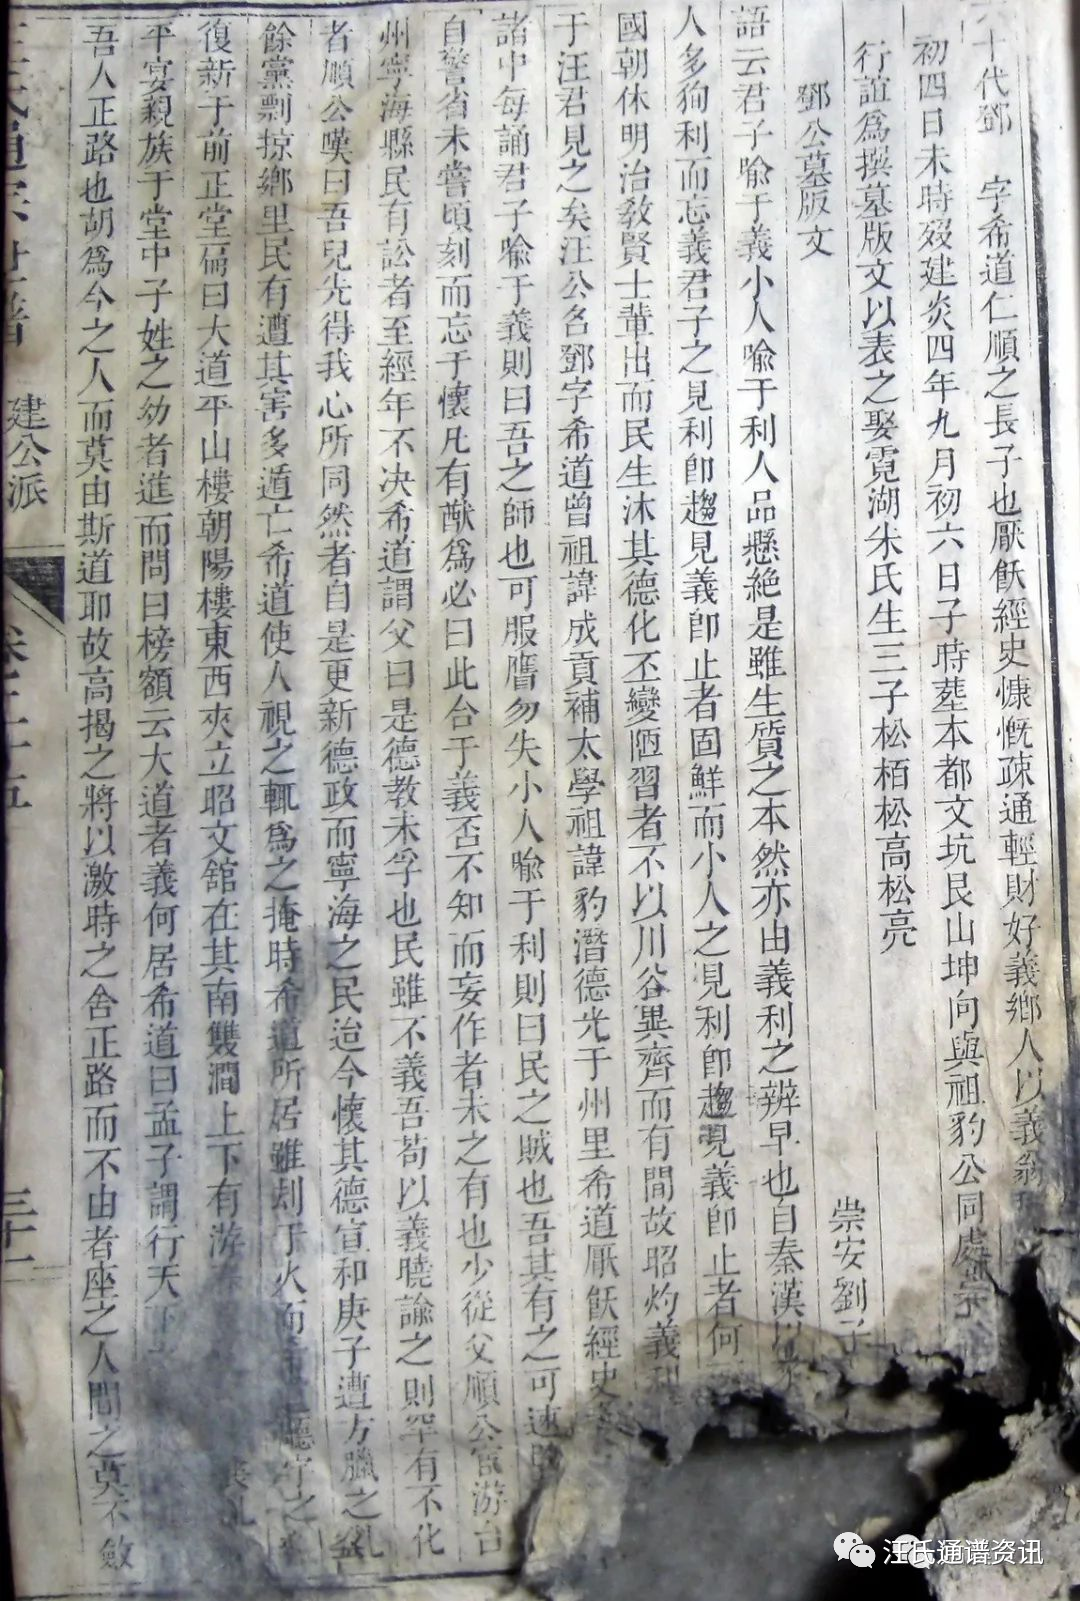 十代鄧　字希道仁順之長子也厭飫經史慷慨疎通輕財好義鄉人以義翁
初四日未時歿建炎四年九月初六日子時塟本都文坑艮山坤向與祖豹公同處
行誼爲撰墓版文以表之娶霓湖朱氏生三子松栢松高松亮
鄧公墓版文　崇安劉子
語云君子喩于義小人喩于利人品懸絶是雖生質之本然亦由義利之辨早也自秦漢以
人多狥利而忘義君子之見利卽趨見義卽止者固鮮而小人之見利卽趨見義卽止者何
國朝休明治教賢士輩出而民生沐其德化丕變陋習者不以川谷異齊而有間故昭灼義利
于汪君見之矣汪公名鄧字希道曾祖諱成貢補太學祖諱豹潛德光于州里希道厭飫經史
諸中每誦君子喩于義則曰吾之師也可服膺勿失小人喩于利則曰民之賊也吾其有之可速
自警省未嘗頃刻而忘于懷凡有猷爲必曰此台于義否不知而妄作者未之有也少從父順公宦游台
州寧海縣民有訟者至經年不决希道謂父曰是德教未孚也民雖不義吾苟以義曉諭之則罕有不化
者順公嘆曰吾兒先得我心所同然者自是更新德政而寧海之民迨今懷其德宣和庚子遭方臘之亂
餘黨剽掠鄉里民有遭其害多遁亡希道使人視之輒爲之掩時希道所居雖刦于火而
復新于前正堂扁曰大道平山樓朝陽樓東西夾立昭文舘在其南雙澗上下有游
平宴親族于堂中子姓之幼者進而問曰榜額云大道者義何居希道曰孟子謂行天下
吾人正路也胡爲今之人而莫由斯道耶故高揭之將以激時之舍正路而不由者座之人聞之莫不斂
建公派
三十一
汪氏通谱资讯